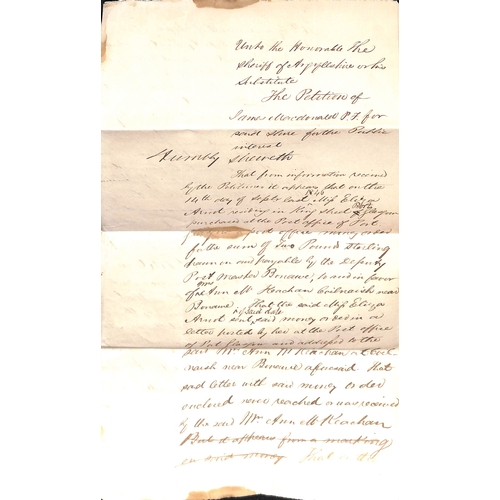 Unto the Honorable The
Sheriff of Argyllshire or his
Substitute
The Petition of
James Macdonald P.F. for
said Shire for the Public
interest
Humbly Sheweth
That from information received
by the Petitioner it appears that on the
14th day of Septr last 1846 Miss Eliza
residing in King Street Port Glasgow
purchased at the Post Office of Port
Glasgow a post office money order
for the sum of Two Pound Sterling
drawn and payable by the Deputy
Post Master Bonawe, to and in favor
of Mrs Ann McKeachan near
Bonawe. That the said Miss Eliza
sent of said date, said money order in a
letter posted by her at the Post office
of Port Glasgow and addressed to the
said Mrs Ann McKeachan at
near Bonawe aforesaid That
said letter with said money order
enclosed never reached or was received
by the said Mrs Ann McKeachan
But it appears from a marking
on said money That